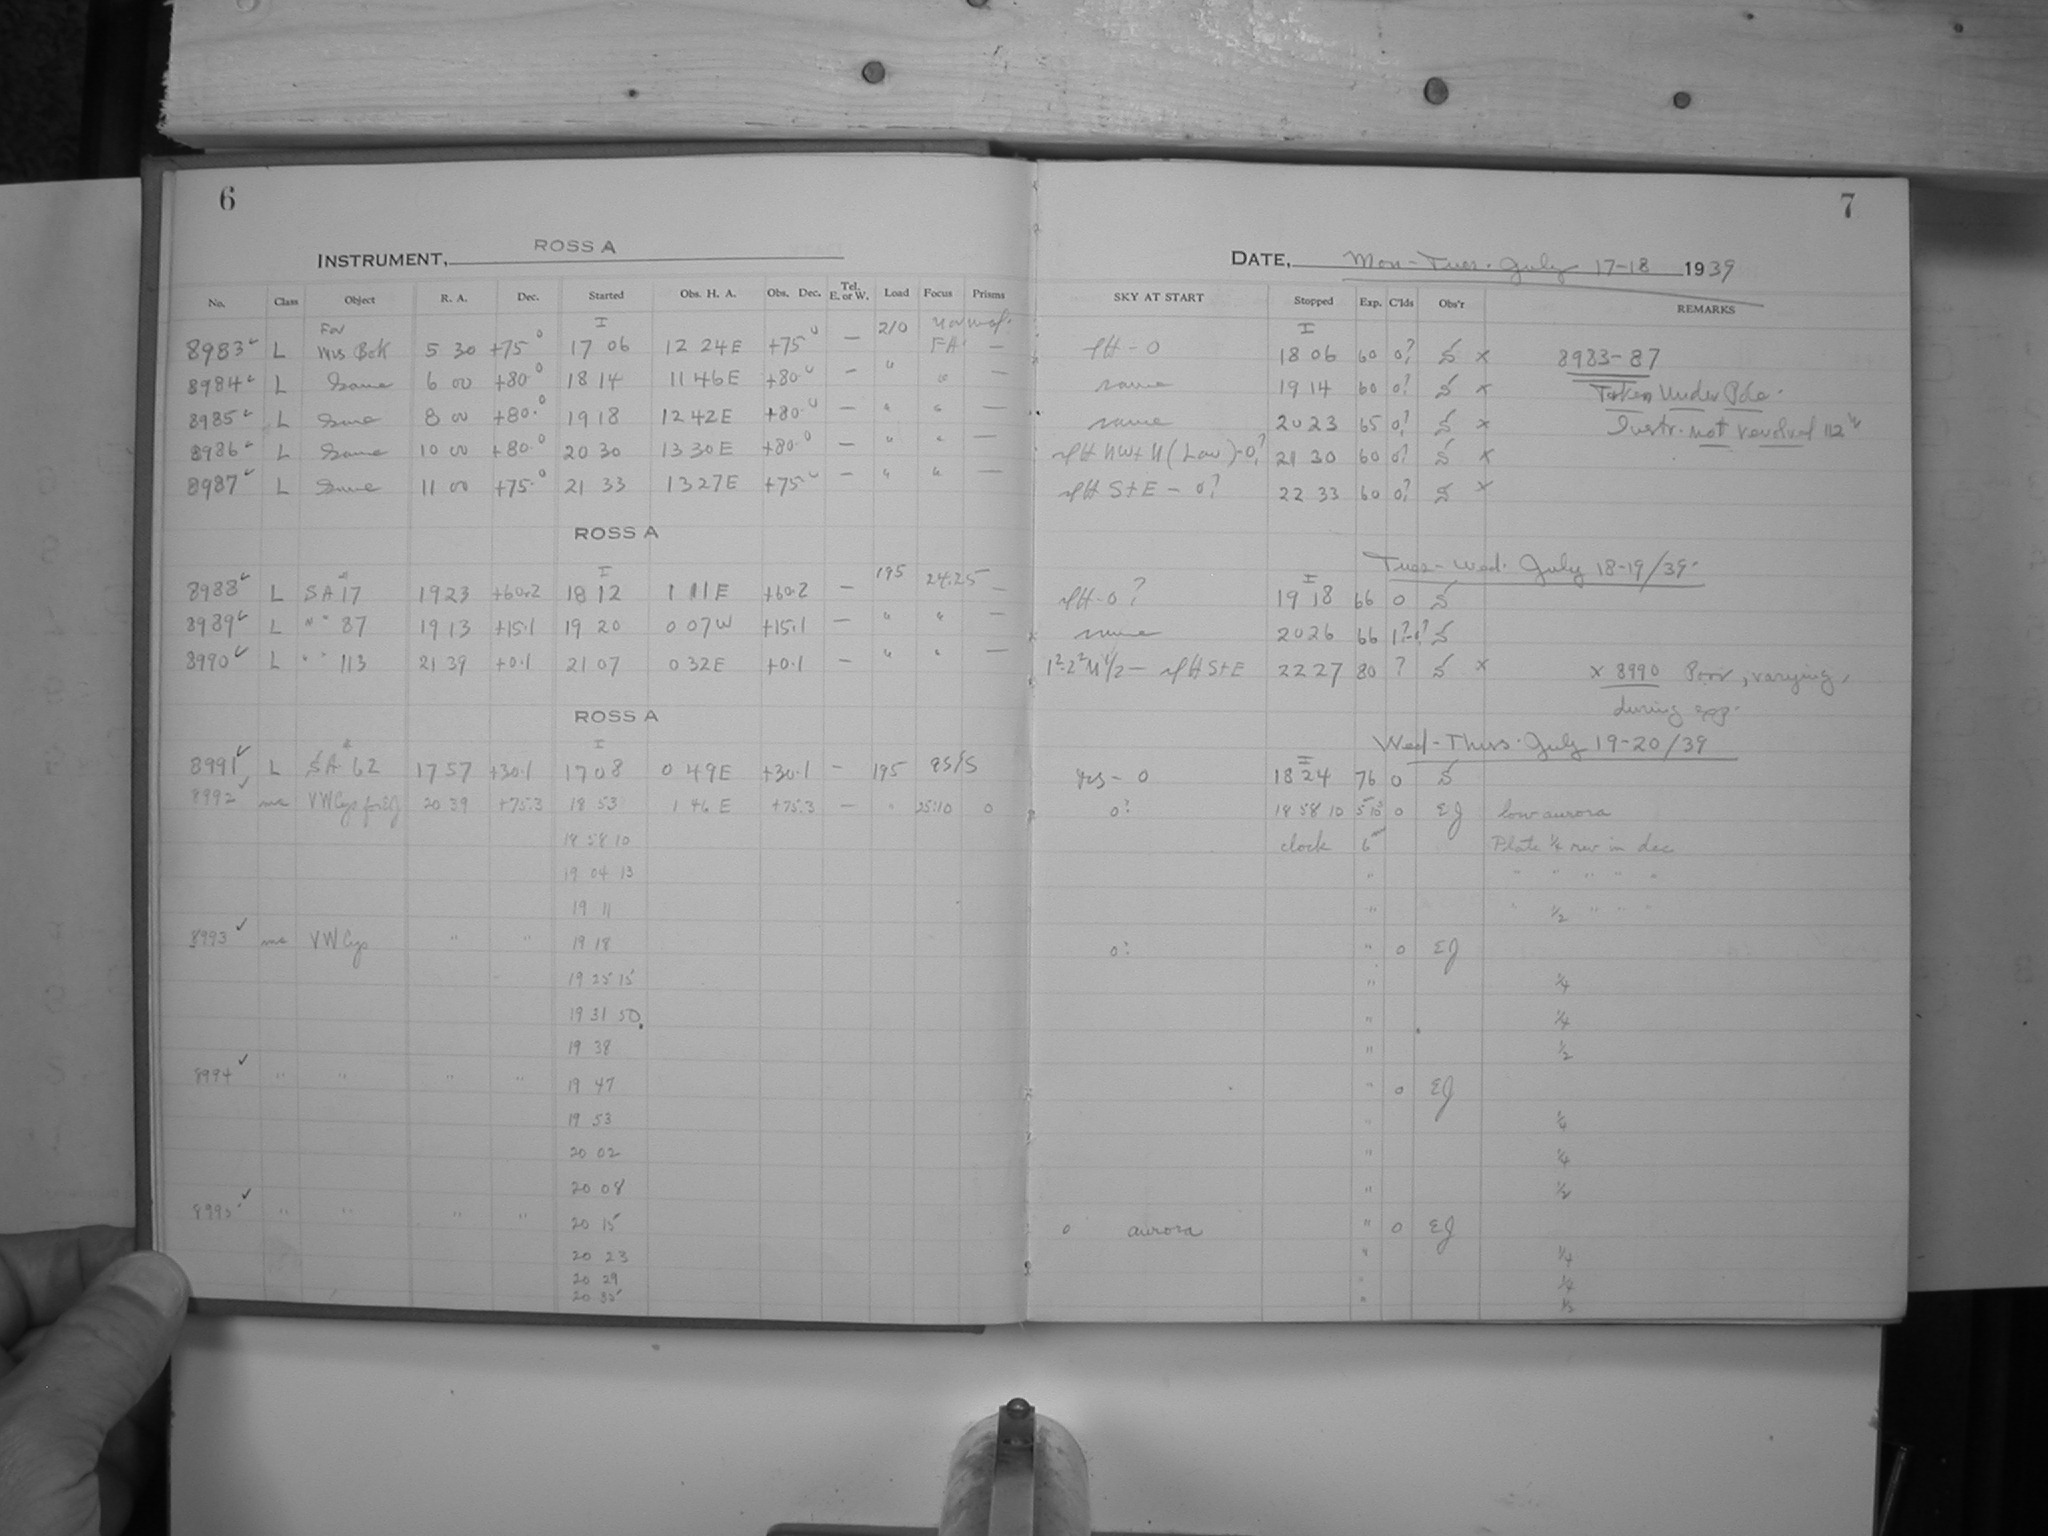 6
INSTRUMENT, ROSS A
No. Class Object R. A. Dec. Started Obs. H. A. Obs. Dec. Tel. E. or W. Load Focus Prisms
8983 ✓ L For Mrs Bok 5 30 +75°0 I 17 06 12 24 E +75°0 — 210 normal FA —
8984 ✓ L Same 6 00 +80.0 18 14 11 46 E +80.0 — " " —
8985 ✓ L Same 8 00 +80.0 19 18 12 42 E +80.0 — " " —
8986 ✓ L Same 10 00 +80.0 20 30 13 30 E +80.0 — " " —
8987 ✓ L Same 11 00 +75.0 21 33 13 27 E +75.0 — " " —
ROSS A
8988 ✓ L SA 17 19 23 +60.2 I 18 12 1 11 E +60.2 — 195 24.25 —
8989 ✓ L " " 87 19 13 +15.1 19 20 0 07 W +15.1 — " " —
8990 ✓ L " " 113 21 39 +0.1 21 07 0 32 E +0.1 — " " —
ROSS A
8991 ✓ L SA 62 17 57 +30.1 I 17 08 0 49 E +30.1 — 195
8992 ✓ mc VW Cys for EJ 20 39 +75.3 18 53 1 46 E +75.3 — " 25.10 0
18 58 10
19 04 13
19 11
8993 ✓ mc VW Cys " " 19 18
19 25 15
19 31 50
19 38
8994 ✓ " " " " 19 47
19 53
20 02
20 08
8995 ✓ " " " " 20 15
20 23
20 29
20 35
7
DATE, Mon-Tues. July 17-18 1939
SKY AT START Stopped Exp. C'lds Obs'r REMARKS
I 18 06 60 0? S × 8983-87
same 19 14 60 0? S × Taken Under Pole.
same 20 23 65 0? S × Instr. not revolved 12
NW + N (Low) - 0? 21 30 60 0? S ×
S + E - 0? 22 33 60 0? S ×
Tues-Wed. July 18-19/39.
I 19 18 66 0 S
same 20 26 66 S
S + E 22 27 80 ? S × × 8990 Poor, varying,
during exp.
Wed-Thurs. July 19-20/39
yes - 0 I 18 24 76 0 S
0? 18 58 10 0 EJ low aurora
clock 6 Plate 1/4 rev in dec
" " " " " "
" " 1/2 " " "
0? " 0 EJ
" 1/4
" 1/4
" 1/2
" 0 EJ
" 1/4
" 1/4
" 1/2
0 aurora " 0 EJ
" 1/4
" 1/4
" 1/2